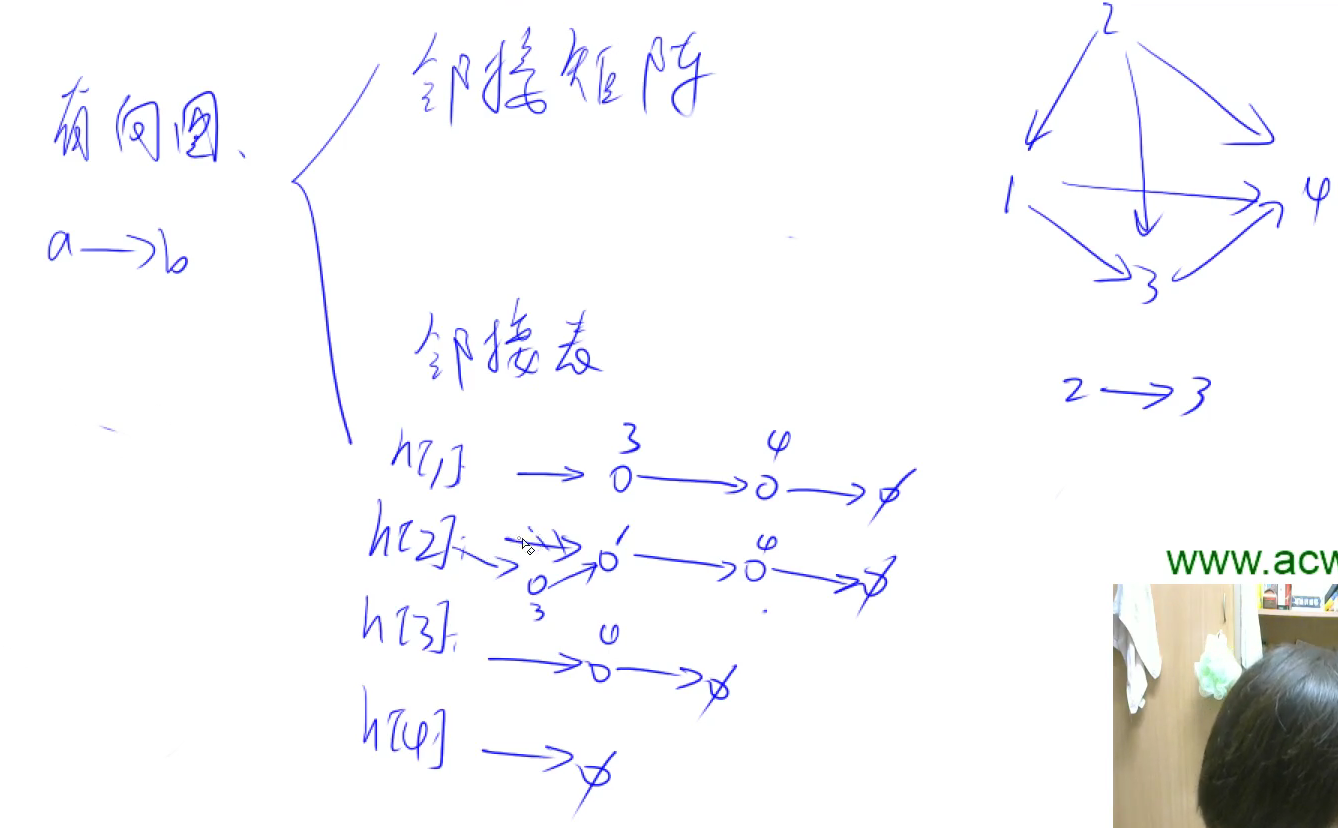 有向图、
a → b
邻接矩阵
邻接表
h[1] → 3 → 4 → ∅
h[2] → 3 → 1 → 4 → ∅
h[3] → 4 → ∅
h[4] → ∅
2
1
4
3
2 → 3
www.acw